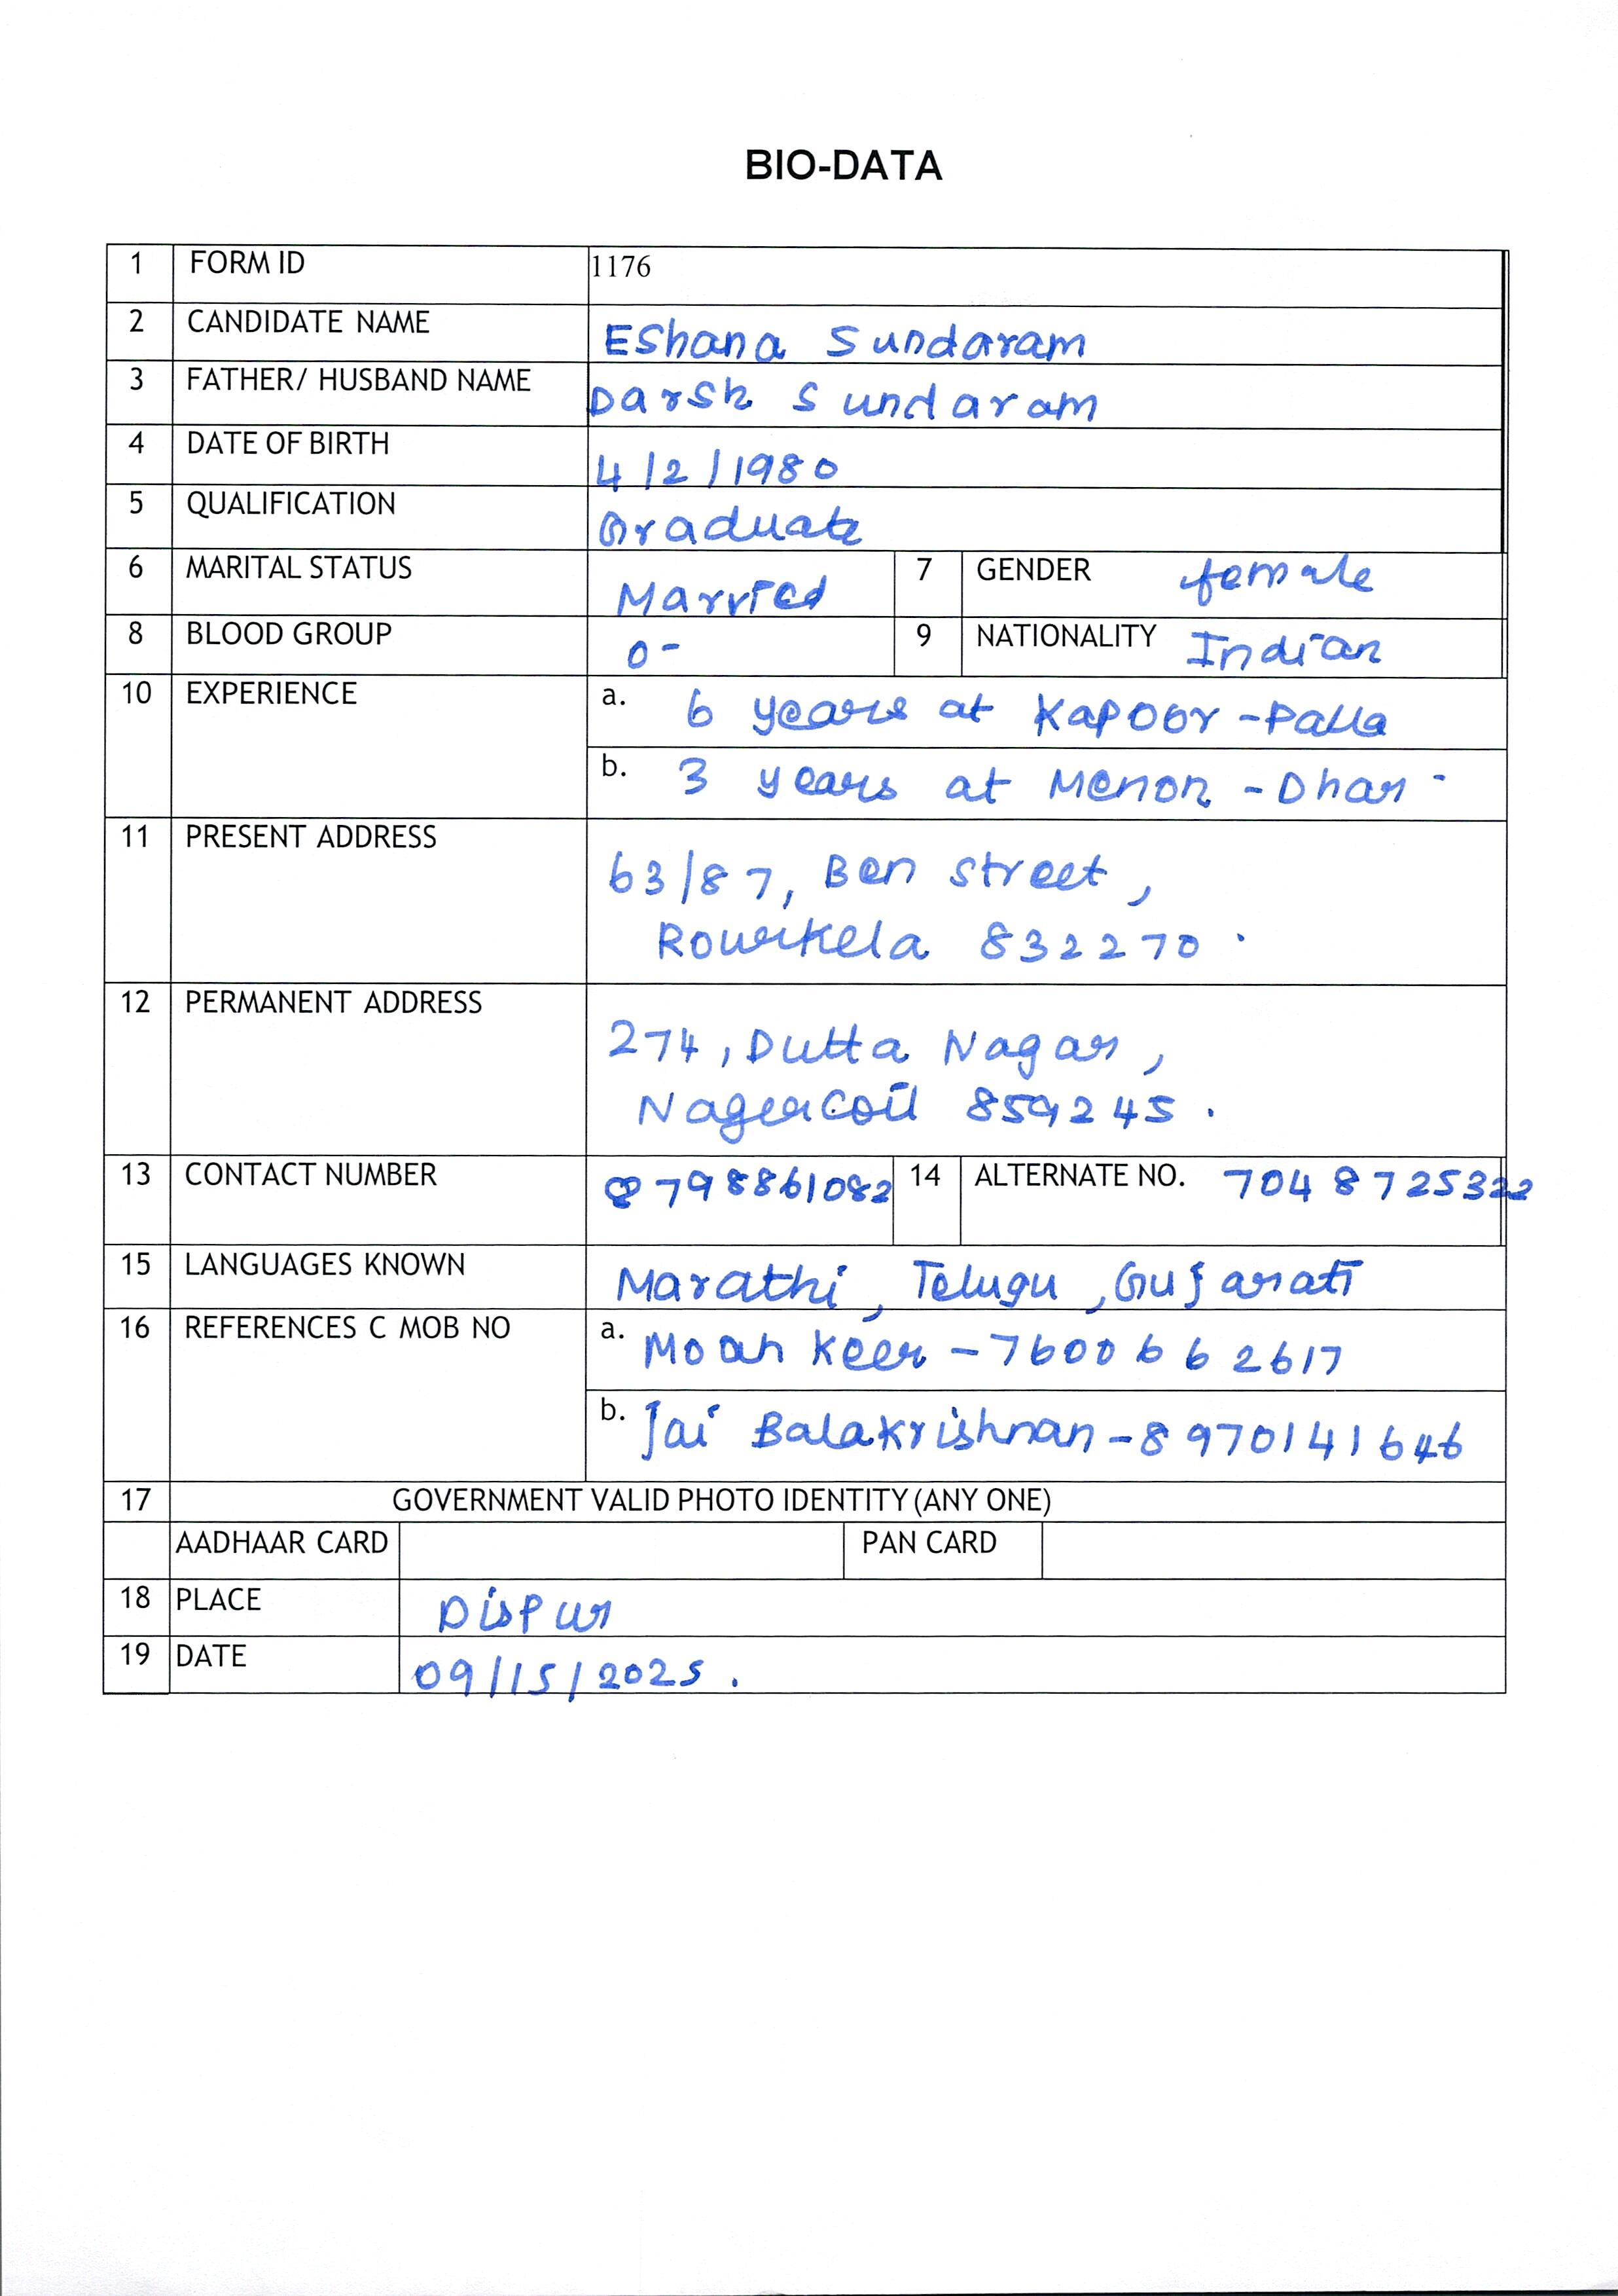 BIO-DATA
1 FORM ID 1176
2 CANDIDATE NAME Eshana Sundaram
3 FATHER/ HUSBAND NAME Darsh Sundaram
4 DATE OF BIRTH 4/2/1980
5 QUALIFICATION Graduate
6 MARITAL STATUS Married 7 GENDER female
8 BLOOD GROUP O- 9 NATIONALITY Indian
10 EXPERIENCE a. 6 years at Kapoor-Palla
b. 3 years at Menon-Dhar
11 PRESENT ADDRESS
63/87, Ben street,
Rourkela 832270.
12 PERMANENT ADDRESS
274, Dutta Nagar,
Nagercoil 859245.
13 CONTACT NUMBER 8798861082 14 ALTERNATE NO. 7048725322
15 LANGUAGES KNOWN Marathi, Telugu, Gujarati
16 REFERENCES C MOB NO a. Moah Keer - 7600662617
b. Jai Balakrishnan - 8970141646
17 GOVERNMENT VALID PHOTO IDENTITY (ANY ONE)
AADHAAR CARD PAN CARD
18 PLACE Dispur
19 DATE 09/15/2025.